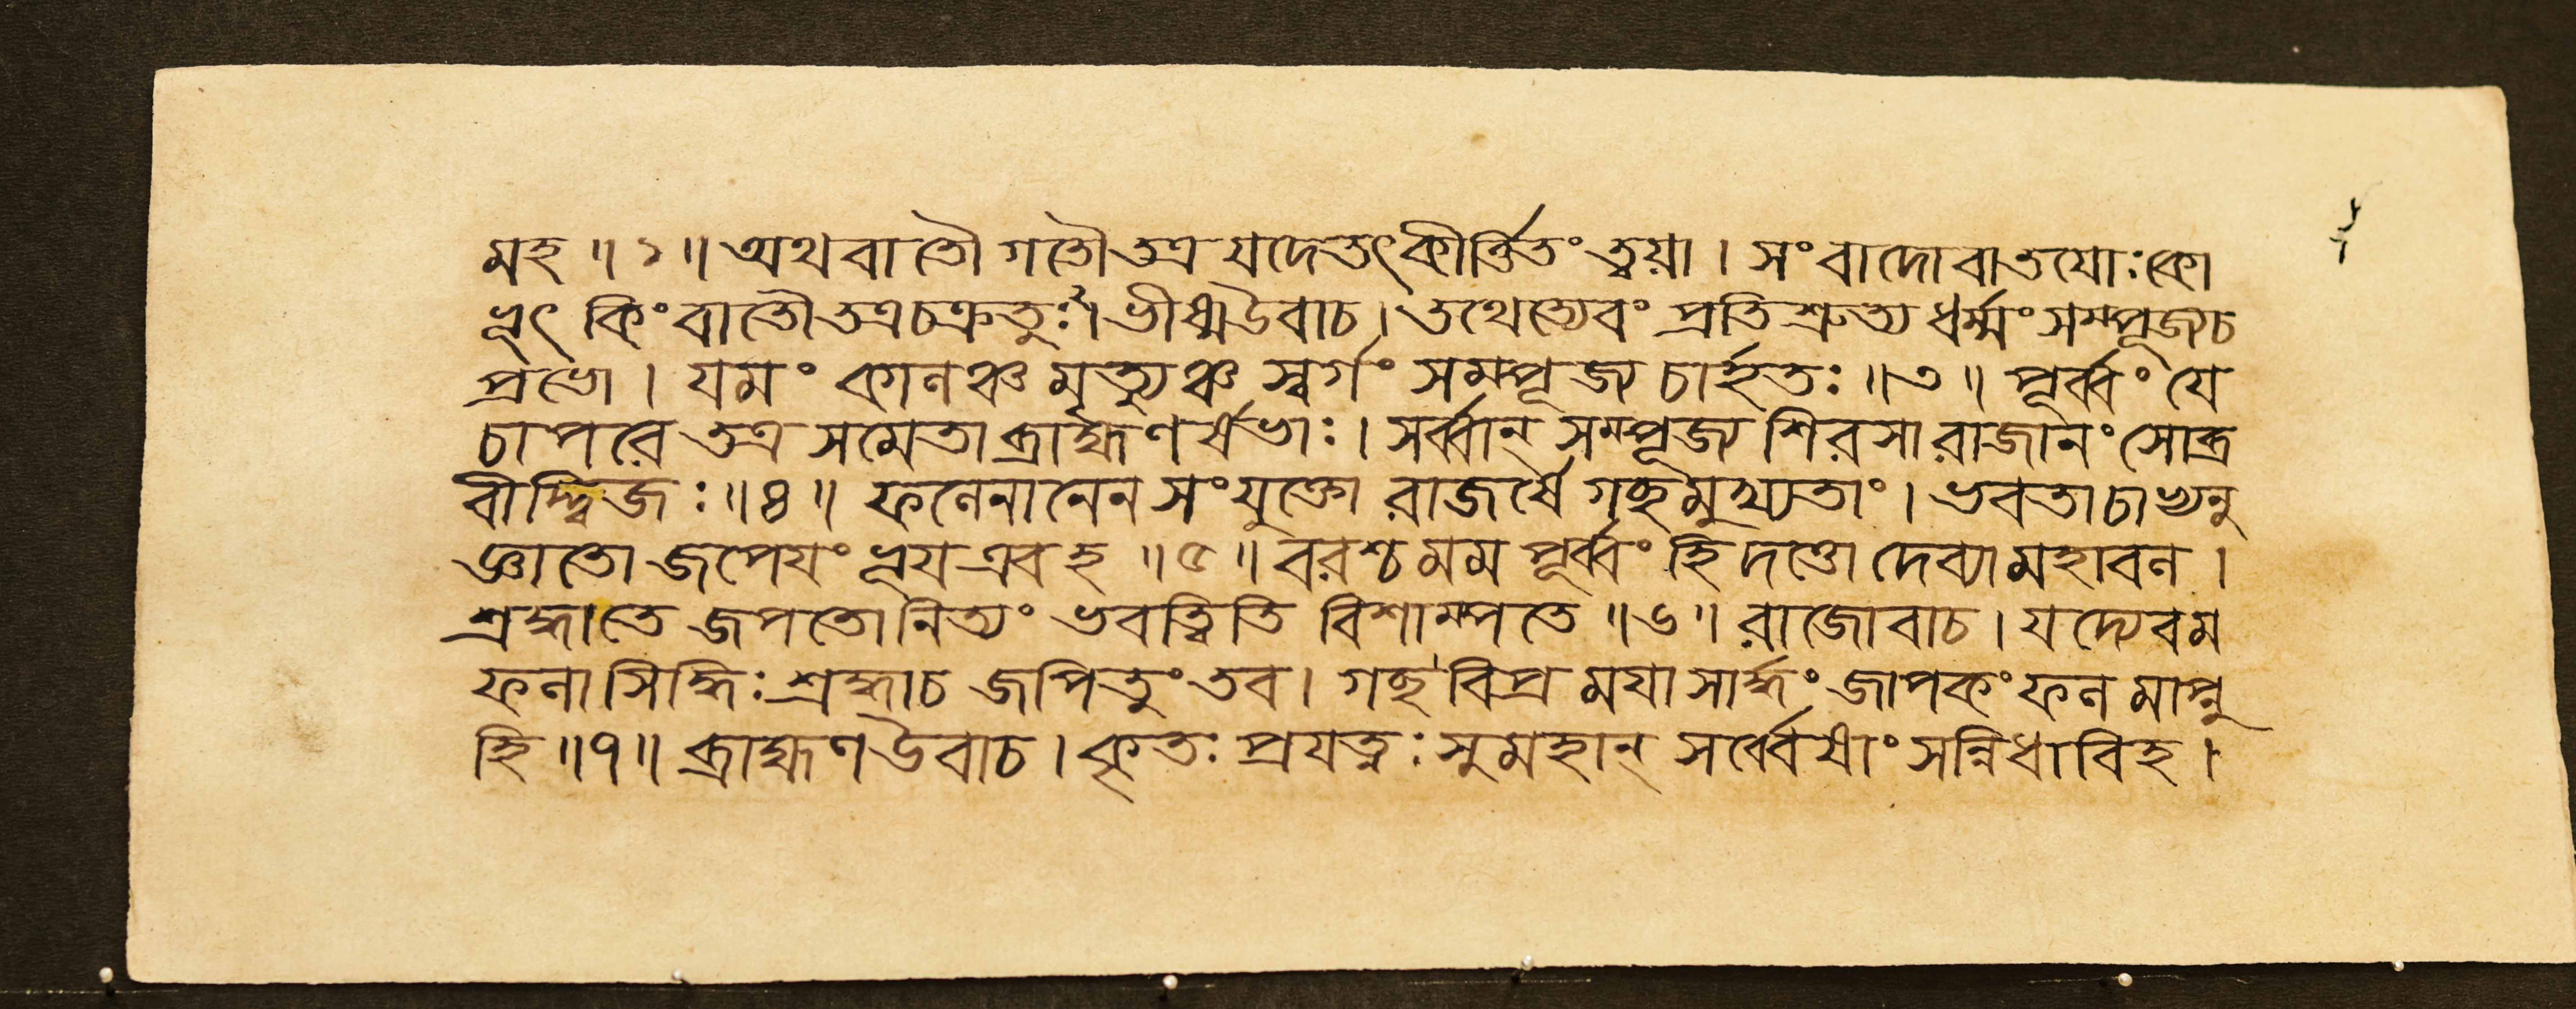 মহ ॥ ১ ॥ অথবা তৌ গতৌ তত্র যদেতৎ কীর্ত্তিতং ত্বয়া । সংবাদো বা তয়োঃ কো
ভূৎ কিং বা তৌ তত্র চক্রতুঃ ।২। ভীষ্ম উবাচ । তথেত্যেবং প্রতিশ্রুত্য ধর্ম্মং সম্পূজ্য চ
প্রভো । যমং কালঞ্চ মৃত্যুঞ্চ স্বর্গং সম্পূজ্য চার্হতঃ ॥ ৩ ॥ পূর্ব্বং যে
চাপরে তত্র সমেতা ব্রাহ্মণর্ষভাঃ । সর্ব্বান্ সম্পূজ্য শিরসা রাজানং সোব্র
বীদ্দ্বিজঃ ॥ ৪ ॥ ফলেনানেন সংযুক্তো রাজর্ষে গচ্ছ মুখ্যতাং । ভবতা চাভ্যনু
জ্ঞাতো জপেয়ং ভূয় এব হ ॥ ৫ ॥ বরশ্চ মম পূর্ব্বং হি দত্তো দেব্যা মহাবল ।
শ্রদ্ধা তে জপতো নিত্যং ভবত্বিতি বিশাম্পতে ॥ ৬ ॥ রাজোবাচ । যদ্যেবম
ফলা সিদ্ধিঃ শ্রদ্ধা চ জপিতুং তব । গচ্ছ বিপ্র ময়া সার্দ্ধং জাপকং ফলমাপ্নু
হি ॥ ৭ ॥ ব্রাহ্মণ উবাচ । কৃতঃ প্রযত্নঃ সুমহান্ সর্ব্বেষাং সন্নিধাবিহ ।